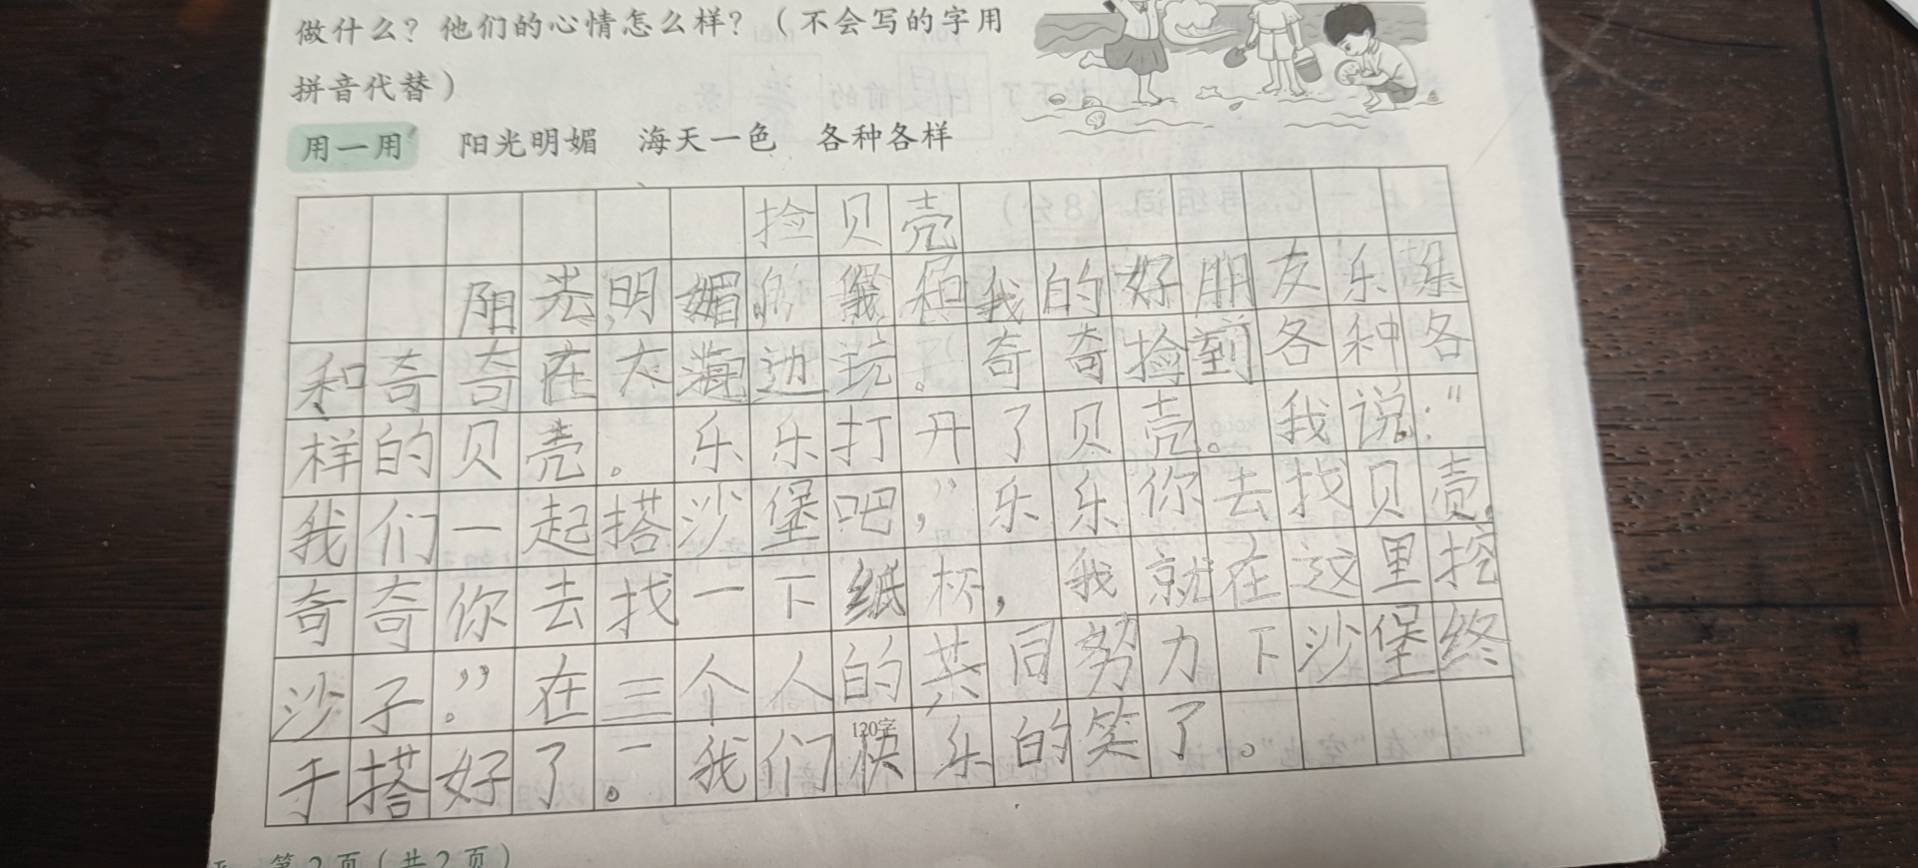 做什么？他们的心情怎么样？（不会写的字用
拼音代替）
用一用 阳光明媚 海天一色 各种各样
捡贝壳
阳光明媚的 我和我的好朋友乐乐
和奇奇在大海边玩。奇奇捡到各种各
样的贝壳。乐乐打开了贝壳。我说：“
我们一起搭沙堡吧，”乐乐你去找贝壳，
奇奇你去找一下纸杯，我就在这里挖
沙子。”在三个人的共同努力下沙堡终
于搭好了。我们快乐的笑了。
120字
第2页（共2页）